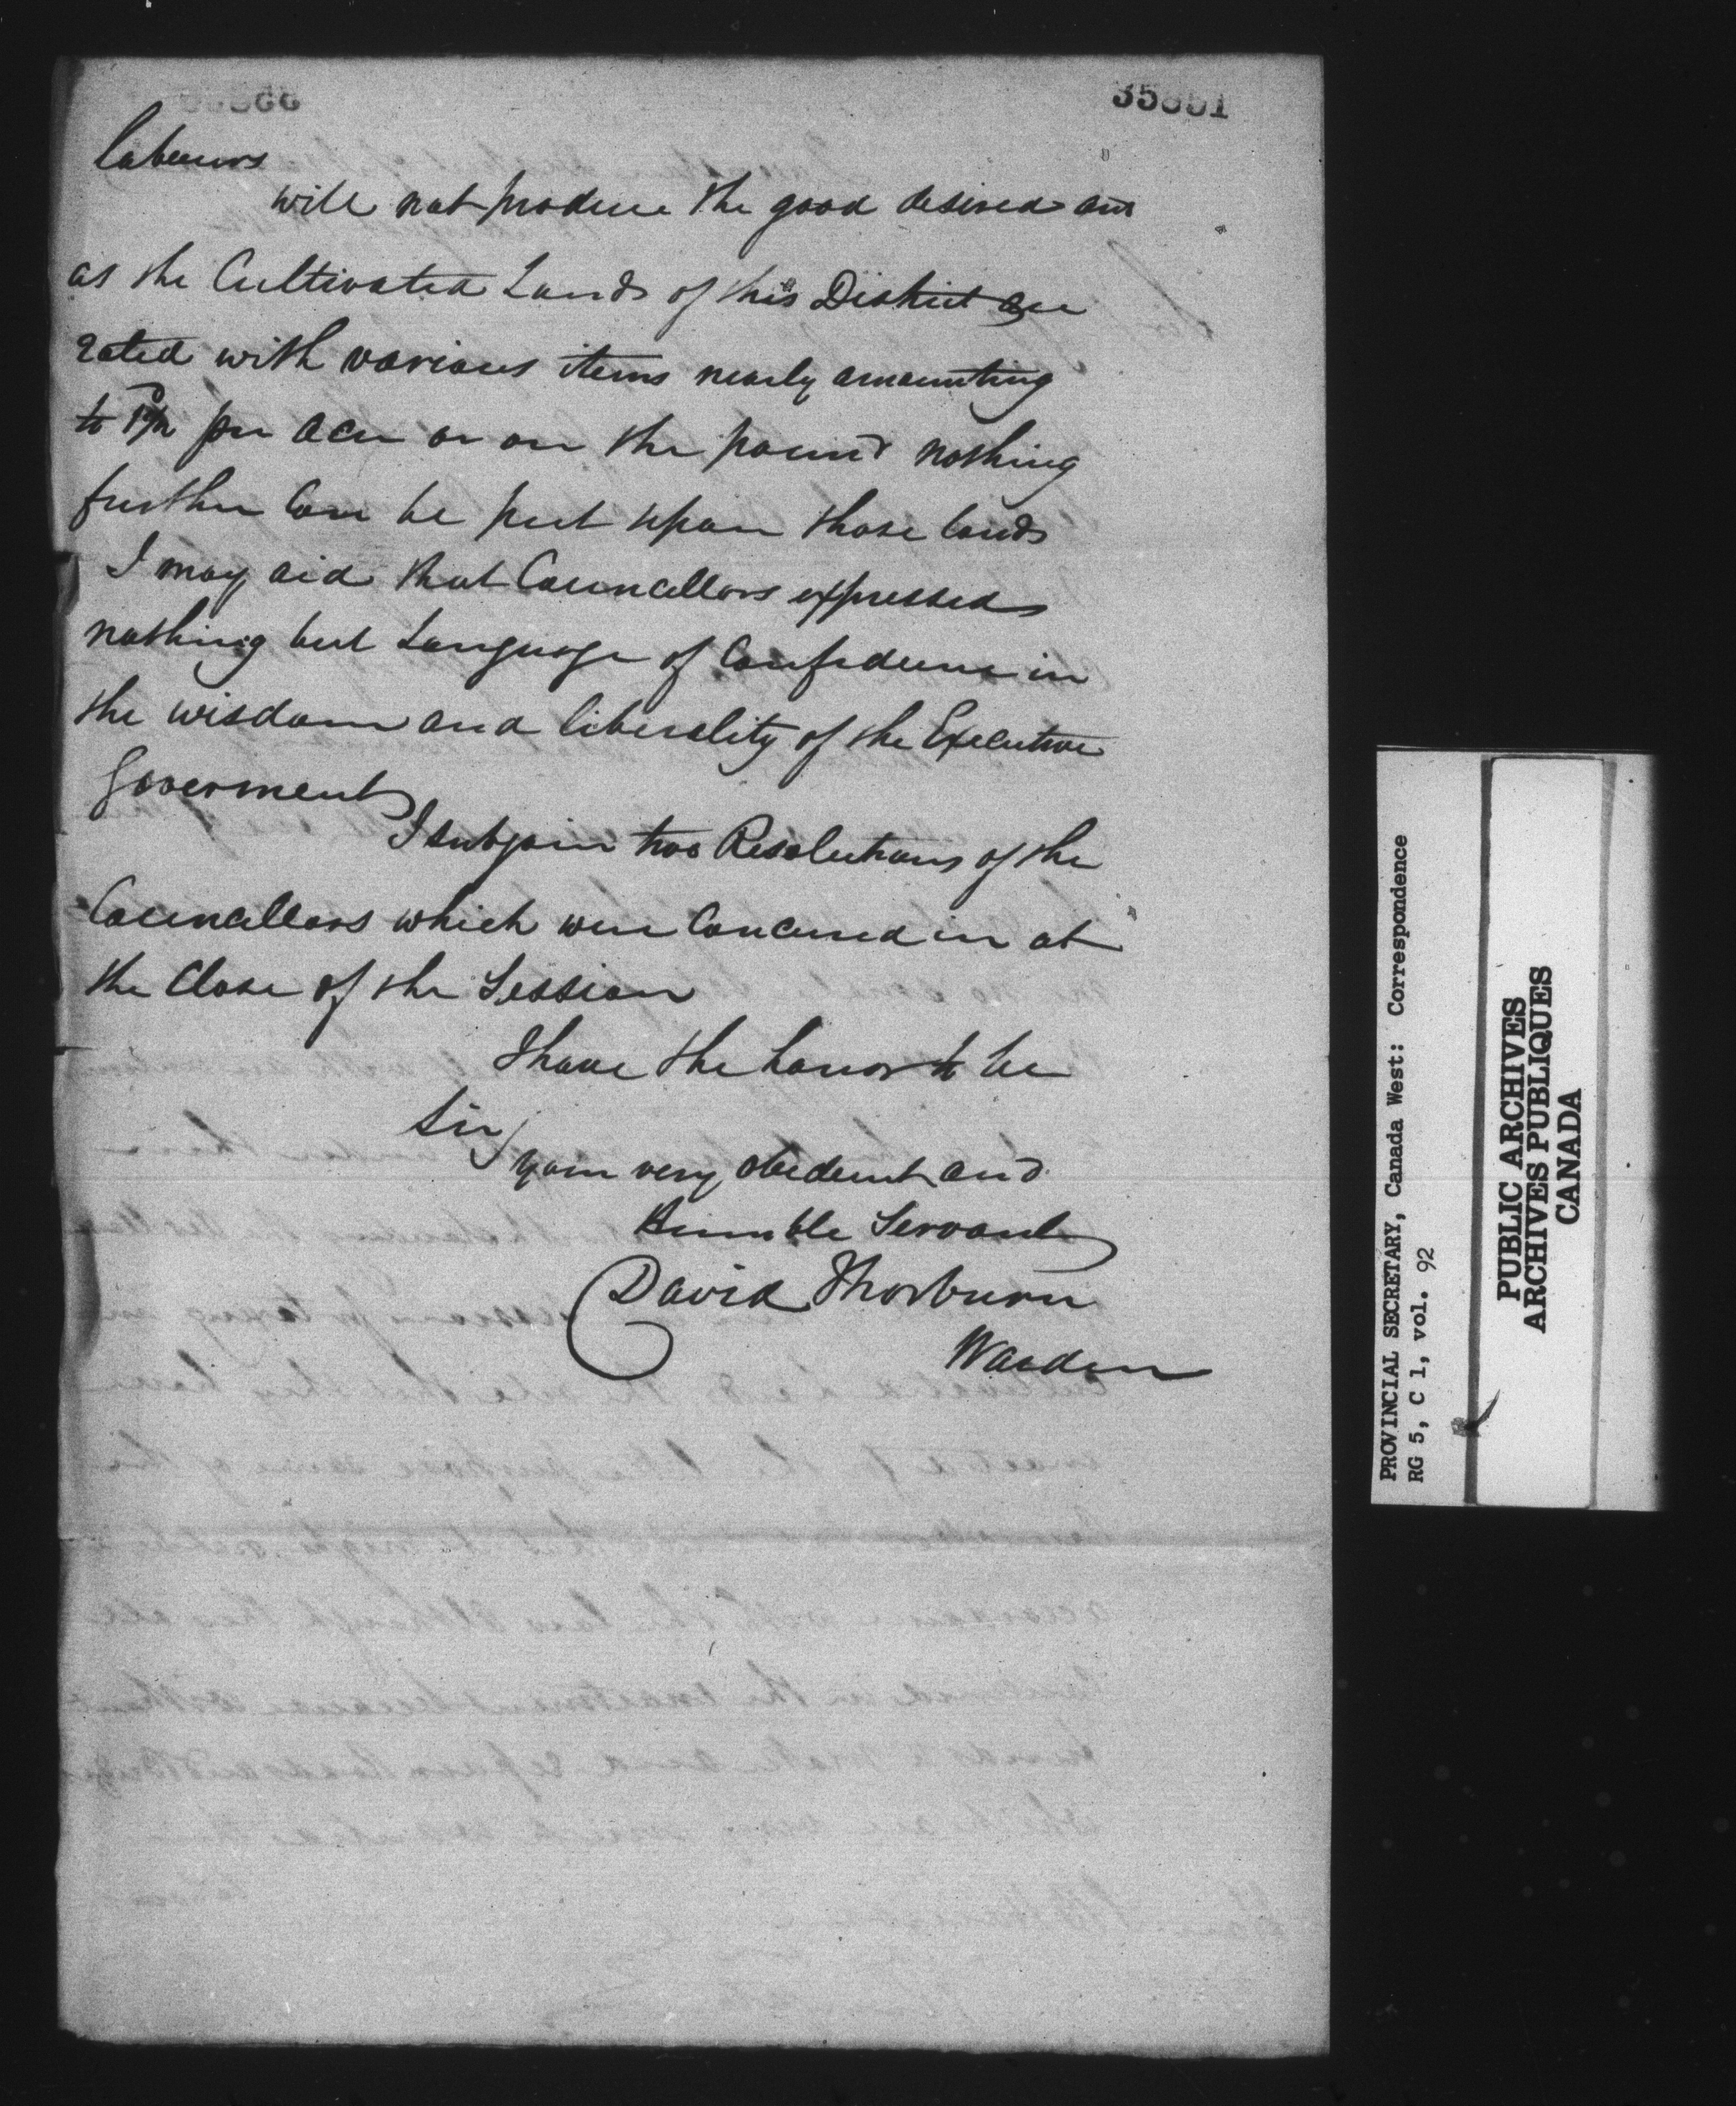 35351
labours
will not produce the good desired and
as the Cultivated Lands of this District are
rated with various items nearly amounting
to per acre or on the pound nothing
further Can be put upon those lands
I may aid that Councellors expressed
nothing but Language of Confidence in
the wisdom and liberality of the Executive
Goverment
I subjoin two Resolutions of the
Councellors which were Concured in at
the Close of the Session
I have the honor to be
Sir
your very obedient and
Humble Servant
David Thorburn
Warden
PROVINCIAL SECRETARY, Canada West: Correspondence
RG 5, C 1, vol. 92
PUBLIC ARCHIVES
ARCHIVES PUBLIQUES
CANADA